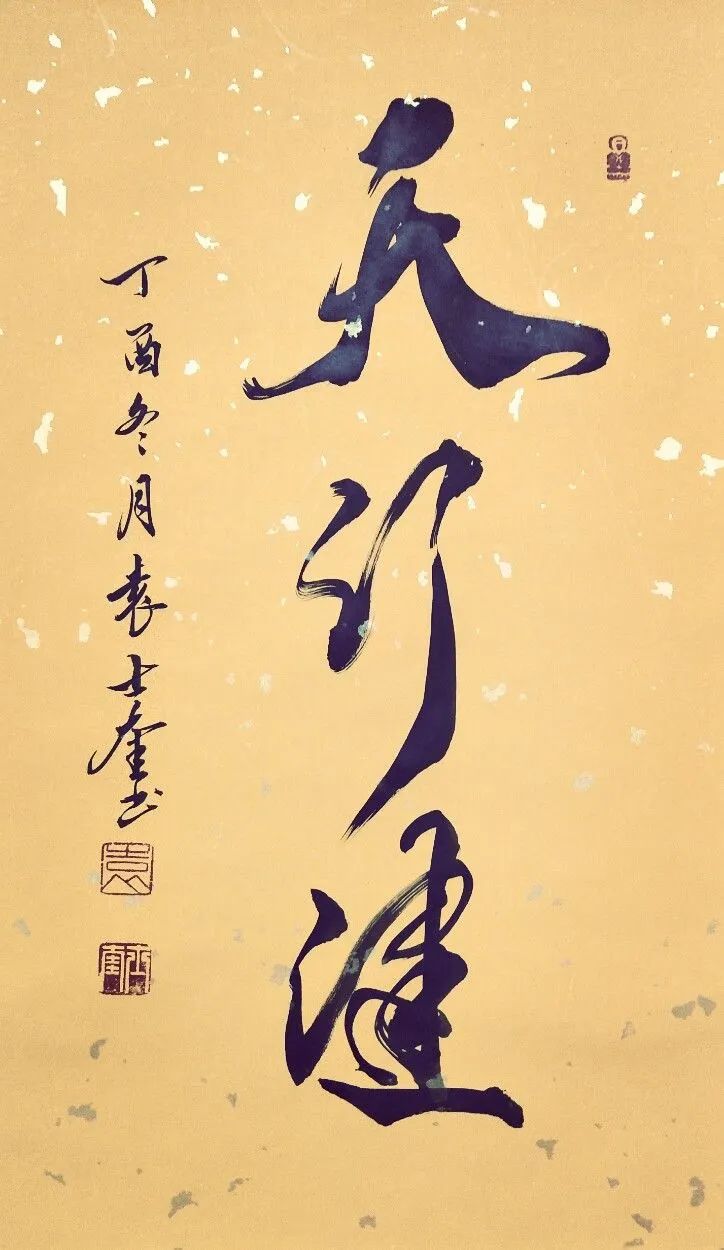 天行健
丁酉冬月袁士奎书